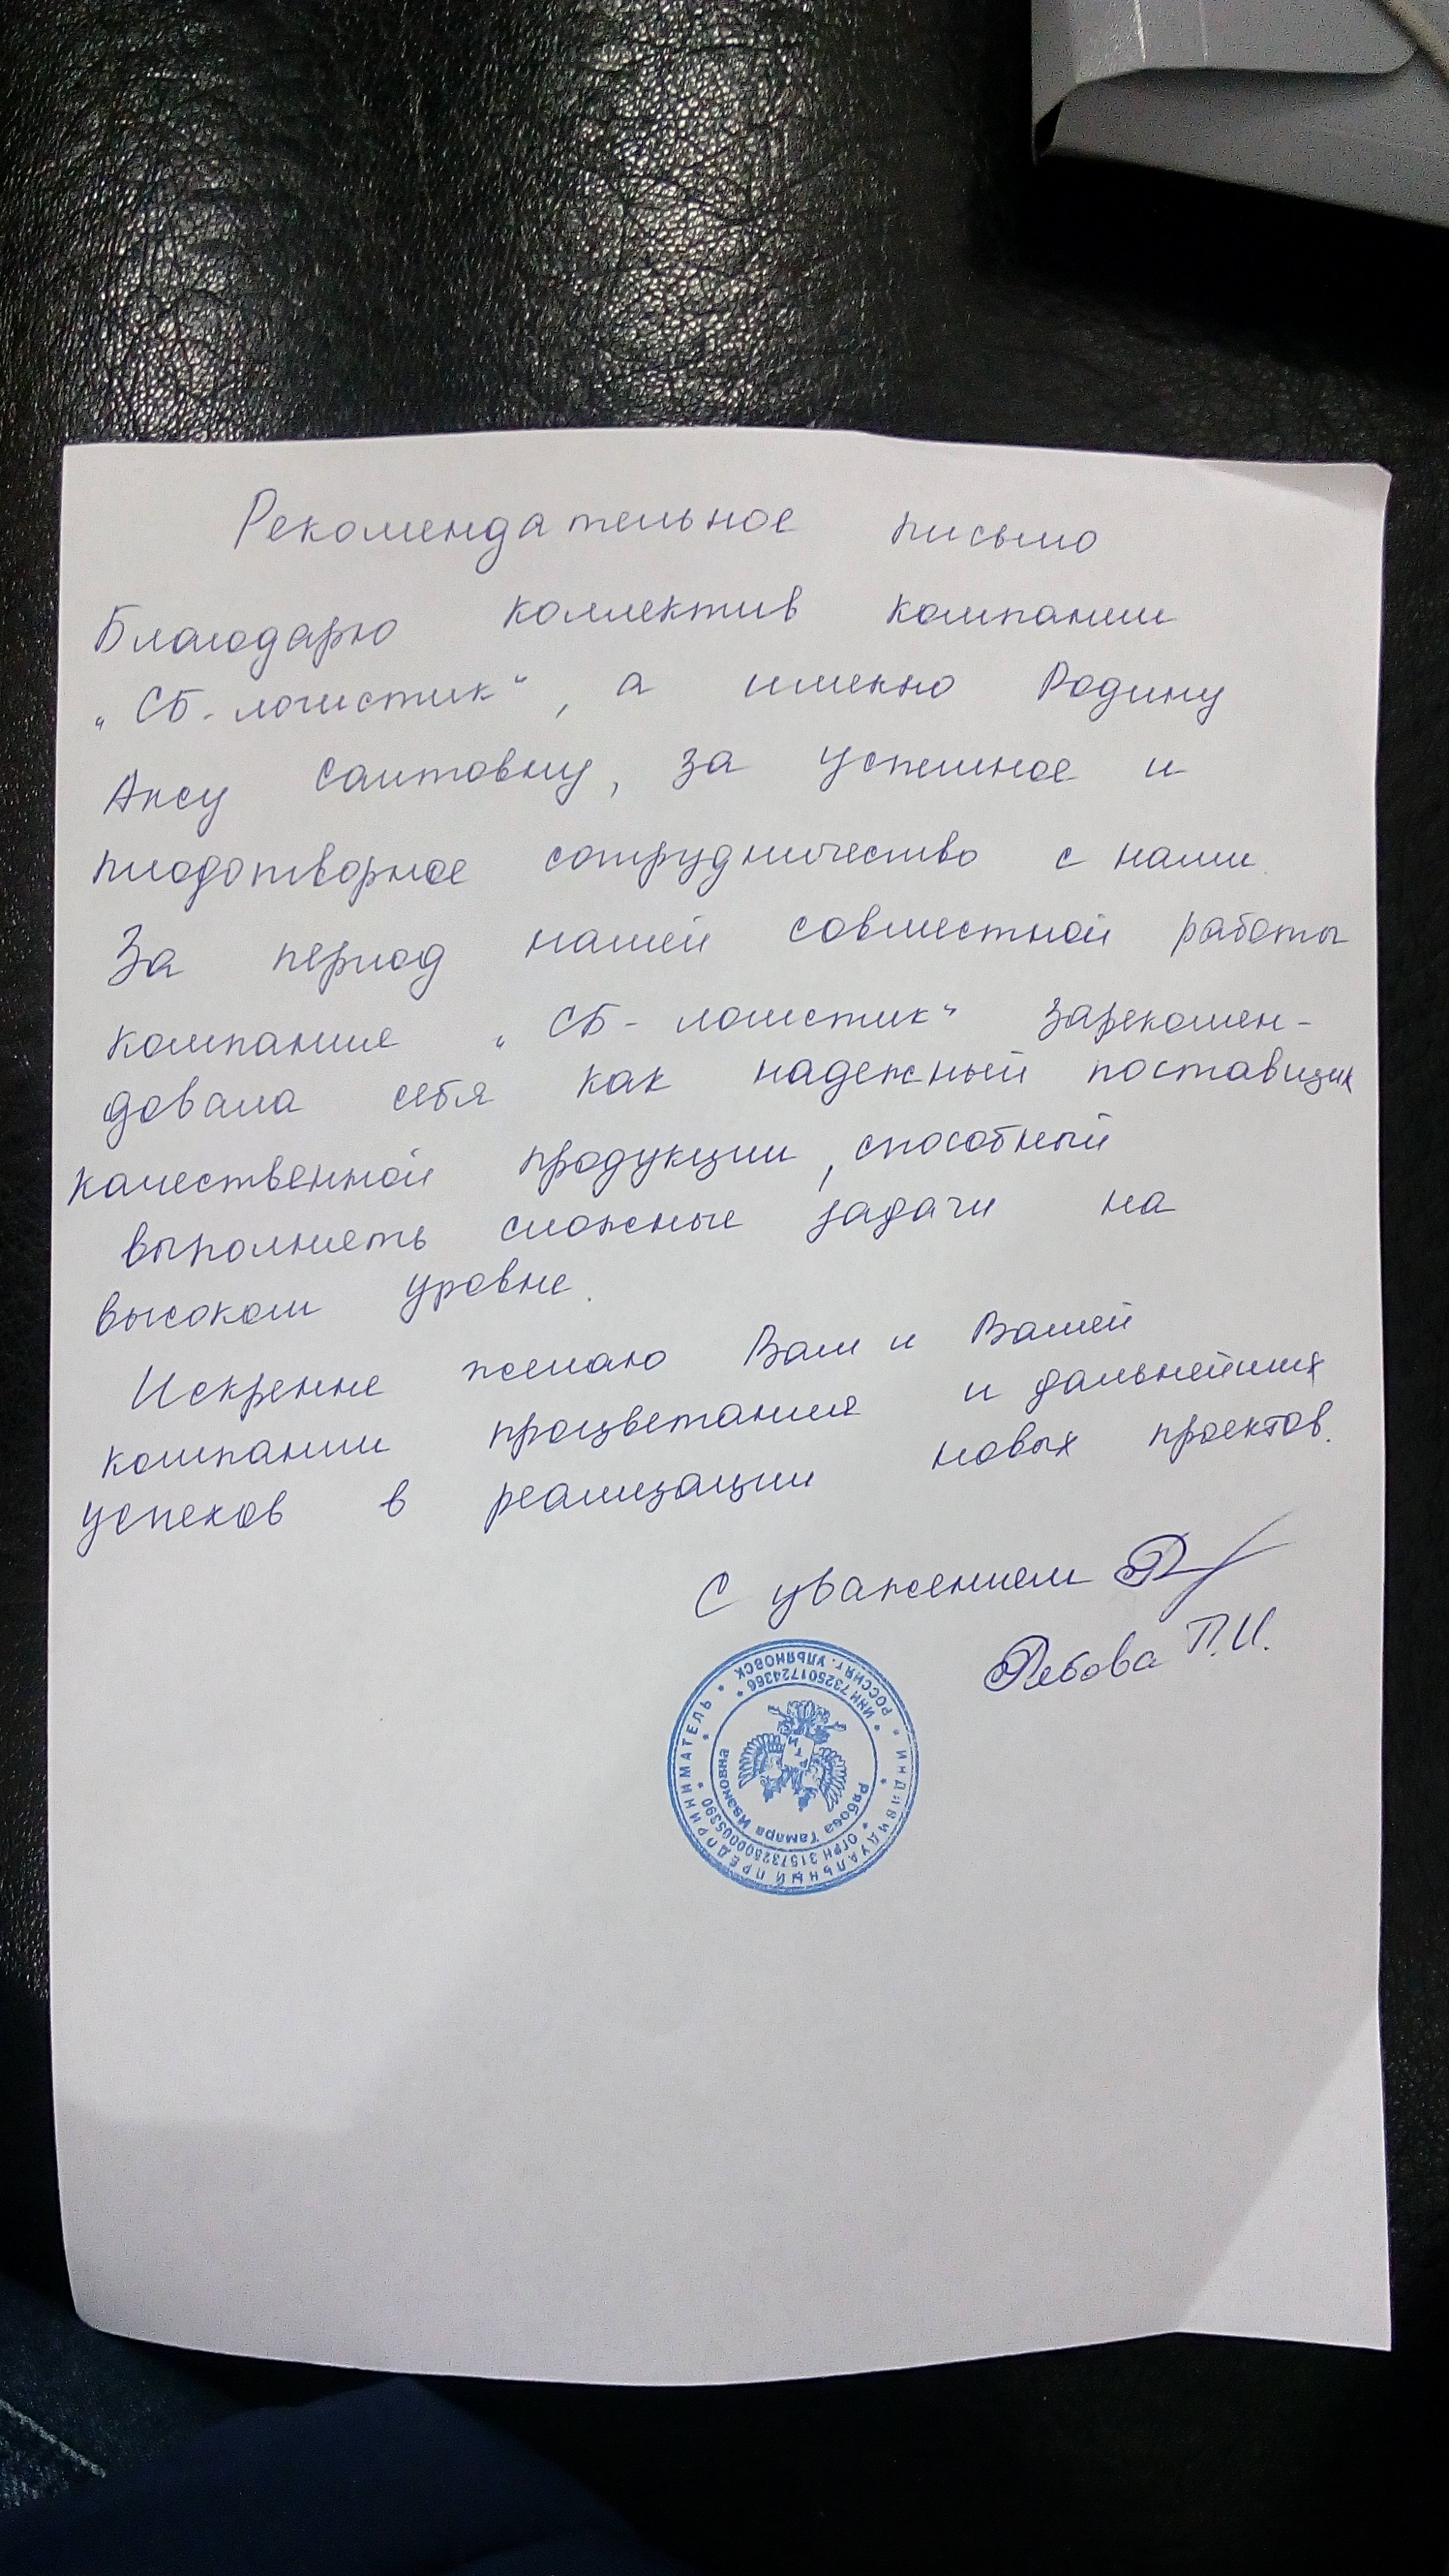 Рекомендательное письмо
Благодарю коллектив компании
„СБ-логистик“, а именно Родину
Аксу Саитовну, за успешное и
плодотворное сотрудничество с нами.
За период нашей совместной работы
компания „СБ-логистик“ зарекомен-
довала себя как надежный поставщик
качественной продукции, способный
выполнять сложные задачи на
высоком уровне.
Искренне желаю Вам и Вашей
компании процветания и дальнейших
успехов в реализации новых проектов.
С уважением
Рябова Т.И.
* ИНДИВИДУАЛЬНЫЙ ПРЕДПРИНИМАТЕЛЬ *
РОССИЯ г. УЛЬЯНОВСК
* ОГРН 315732500005390 *
ИНН 732501724366 *
Рябова Тамара Ивановна